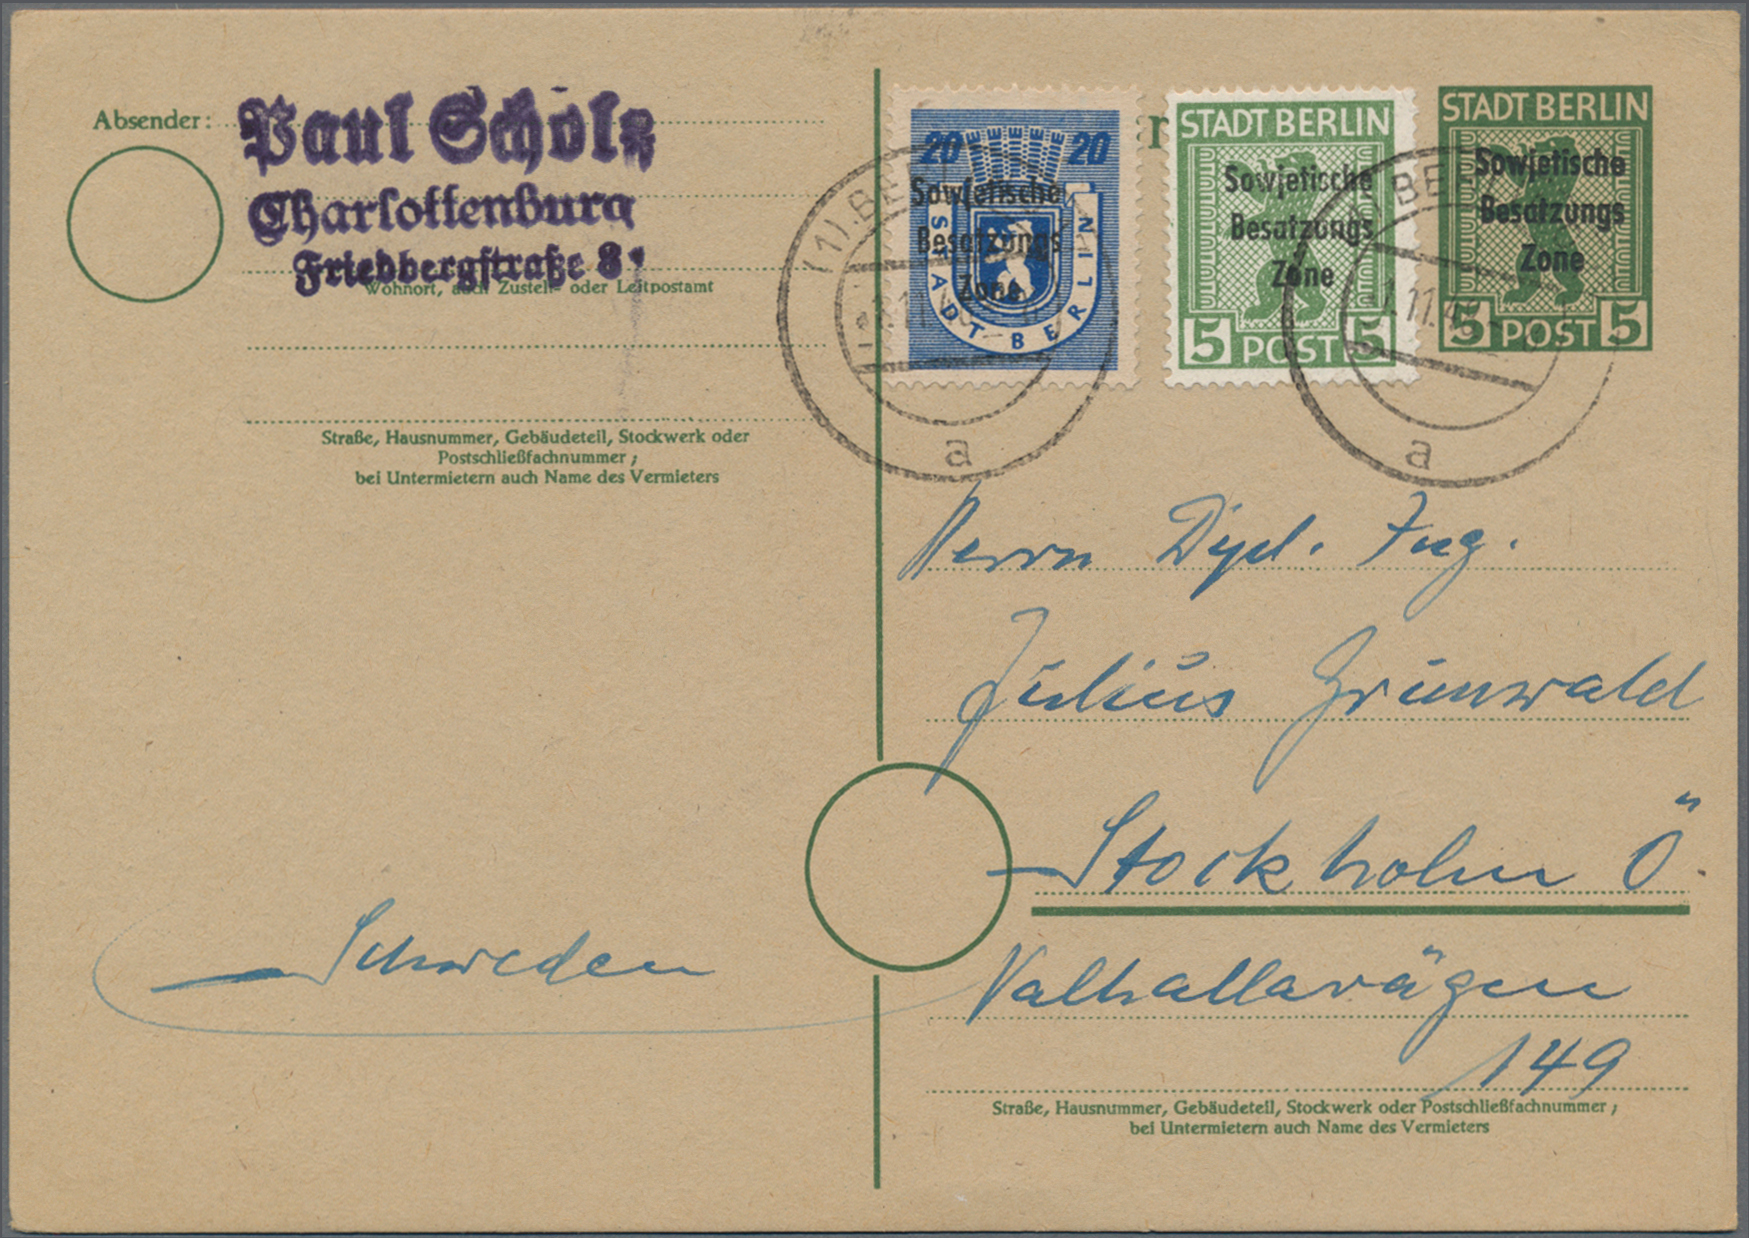 Absender:
Paul Scholz
Charlottenburg
Friedbergstraße 8
Wohnort, auch Zustell- oder Leitpostamt
Straße, Hausnummer, Gebäudeteil, Stockwerk oder
Postschließfachnummer;
bei Untermietern auch Name des Vermieters
20 20
STADT BERLIN
Sowjetische
Besatzungs
Zone
STADT BERLIN
Sowjetische
Besatzungs
Zone
5 POST 5
STADT BERLIN
Sowjetische
Besatzungs
Zone
5 POST 5
(1) BE
a
BE
11.4
a
Herrn Dipl. Ing.
Julius Grünwald
Stockholm Ö.
Schweden
Valhallavägen
149
Straße, Hausnummer, Gebäudeteil, Stockwerk oder Postschließfachnummer;
bei Untermietern auch Name des Vermieters